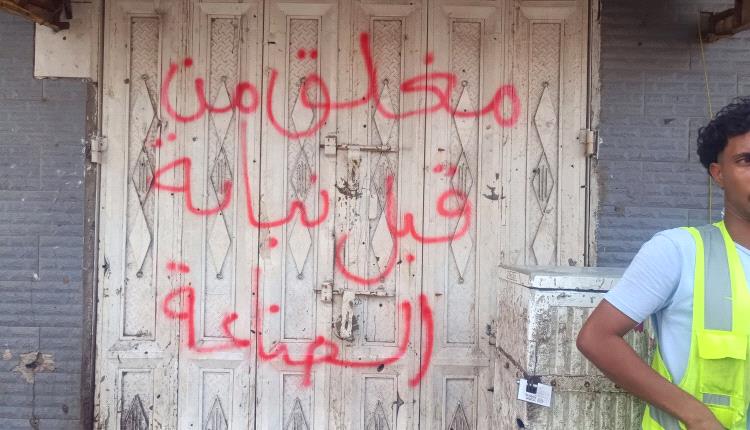 مغلق من
قبل نيابة
الصناعة